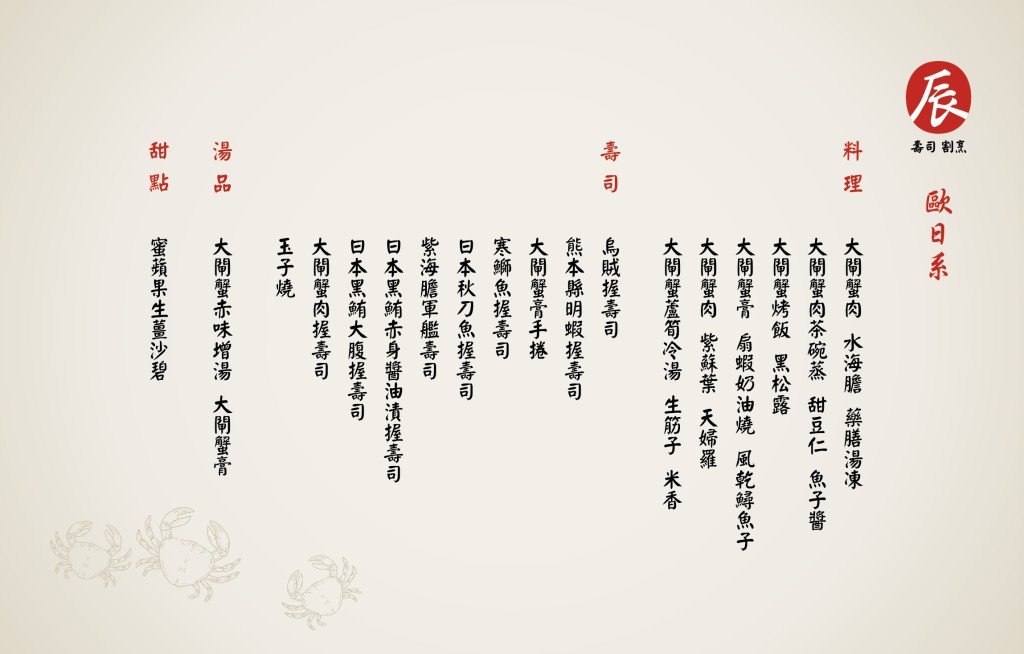 辰
壽司 割烹
歐日系
料理
大閘蟹肉 水海膽 藥膳湯凍
大閘蟹肉茶碗蒸 甜豆仁 魚子醬
大閘蟹烤飯 黑松露
大閘蟹膏 扇蝦奶油燒 風乾鱘魚子
大閘蟹肉 紫蘇葉 天婦羅
大閘蟹蘆筍冷湯 生筋子 米香
壽司
烏賊握壽司
熊本縣明蝦握壽司
大閘蟹膏手捲
寒鰤魚握壽司
日本秋刀魚握壽司
紫海膽軍艦壽司
日本黑鮪赤身醬油漬握壽司
日本黑鮪大腹握壽司
大閘蟹肉握壽司
玉子燒
湯品
大閘蟹赤味增湯 大閘蟹膏
甜點
蜜蘋果生薑沙碧